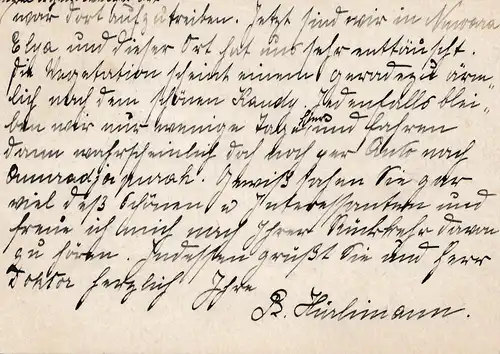 war dort aufzutreiben. Jetzt sind wir in Nuwara
Elya und dieser Ort hat uns sehr enttäuscht.
Die Vegetation scheint einem geradezu ärm-
lich nach dem schönen Kandy. Jedenfalls blei-
ben wir nur wenige Tage hier und fahren
dann wahrscheinlich doch noch per Auto nach
Anuradjapurah. Gewiß sahen Sie gar
viel deß Schönen u Interessanten und
freue ich mich nach Ihrer Rückkehr davon
zu hören. Indessen grüßt Sie und Herr
Doktor herzlich Ihre
B. Hürlimann.